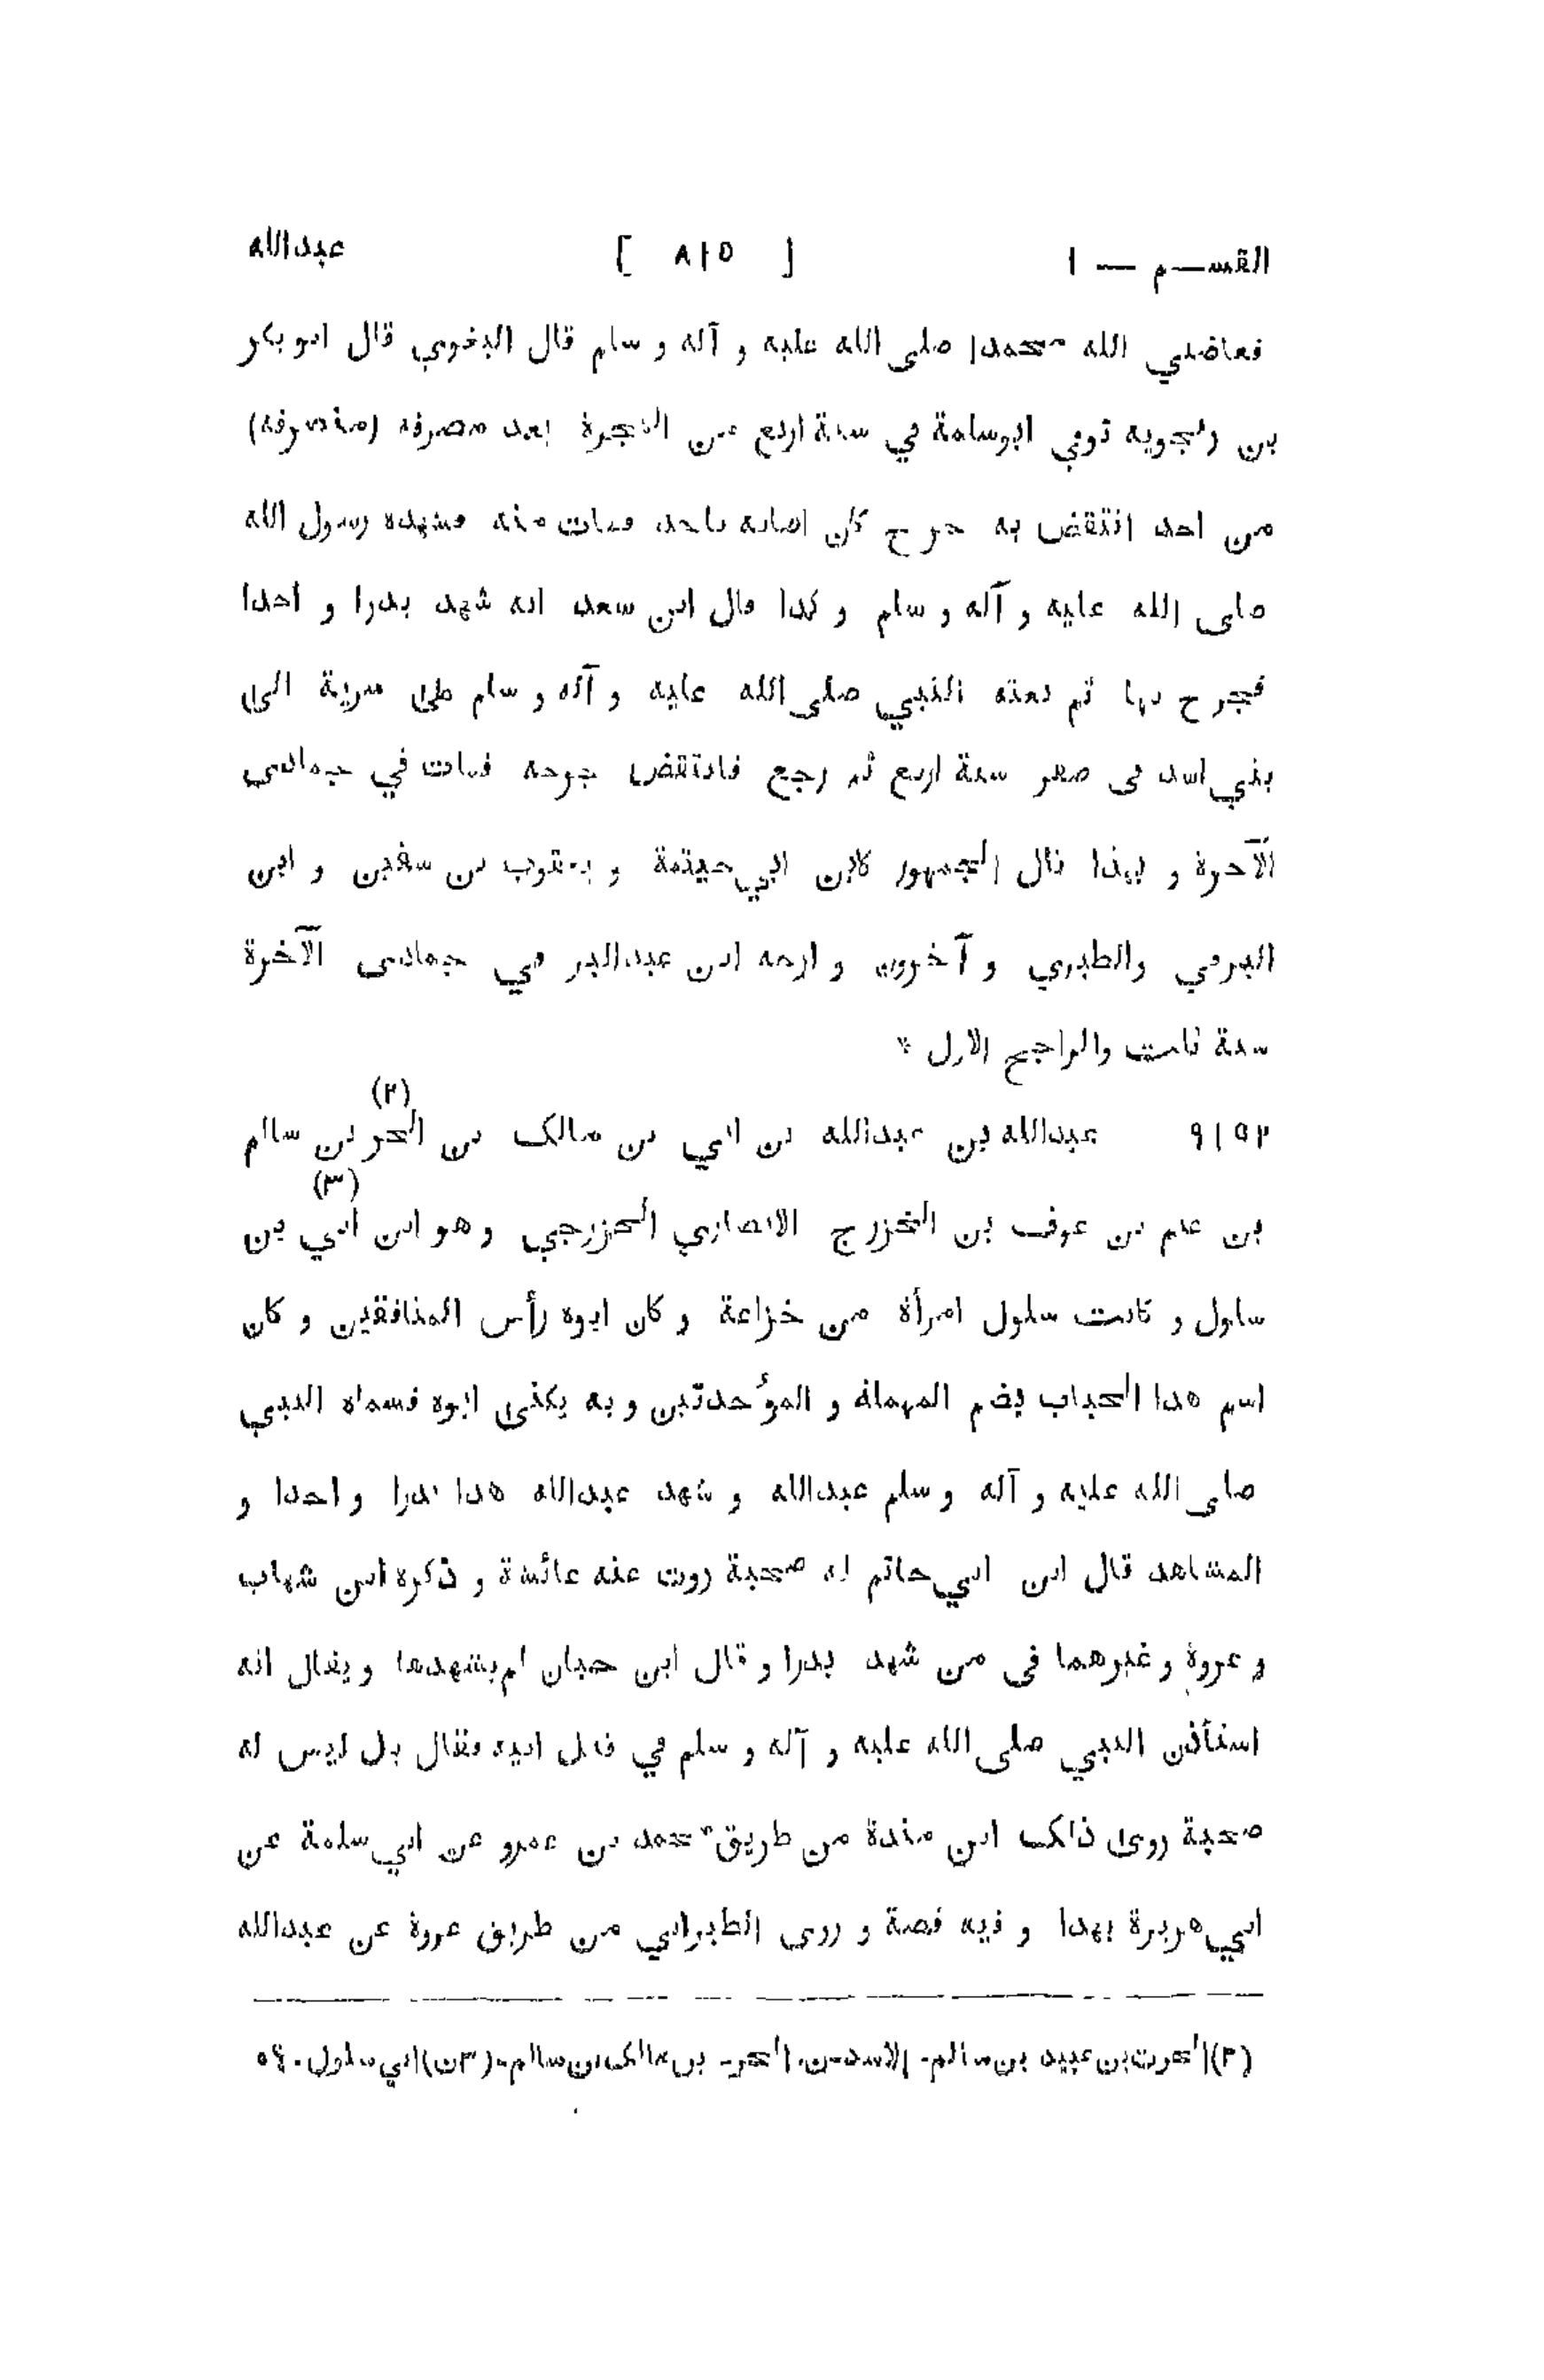 القســـم — ١ [ ٨١٥ ] عبدالله
فعاضني الله محمدا صلى الله عليه و آله و سلم قال البغوي قال ابو بكر
بن زنجويه توفي ابوسلمة في سنة اربع من الهجرة بعد مصرفه (منصرفه)
من احد انتقض به جرح كان اصابه باحد فمات منه فشهده رسول الله
صلى الله عليه و آله و سلم و كذا قال ابن سعد انه شهد بدرا و احدا
فجرح بها ثم بعثه النبي صلى الله عليه و آله و سلم على سرية الى
بني اسد في صفر سنة اربع ثم رجع فانتقض جرحه فمات في جمادى
الآخرة و بهذا قال الجمهور كابن ابي خيثمة و يعقوب بن سفين و ابن
البرقي والطبري و آخرون و ارخه ابن عبدالبر في جمادى الآخرة
سنة ثلث والراجح الاول *
٩١٥٢ عبدالله بن عبدالله بن ابي بن مالك بن الحر (٢) بن سالم
بن غنم بن عوف بن الخزرج الانصاري الخزرجي و هو ابن أبي (٣) بن
سلول و كانت سلول امرأة من خزاعة و كان ابوه رأس المنافقين و كان
اسم هذا الحباب بضم المهملة و المؤحدتين و به يكنى ابوه فسماه النبي
صلى الله عليه و آله و سلم عبدالله و شهد عبدالله هذا بدرا و احدا و
المشاهد قال ابن ابي حاتم له صحبة روت عنه عائشة و ذكره ابن شهاب
و عروة و غيرهما فى من شهد بدرا و قال ابن حبان لم يشهدها و يقال انه
استأذن النبي صلى الله عليه و آله و سلم في قتل ابيه فقال بل ليس له
صحبة روى ذلك ابن مندة من طريق محمد بن عمرو عن ابي سلمة عن
ابي هريرة بهذا و فيه قصة و روى الطبراني من طريق عروة عن عبدالله
(٢) الحرث بن عبيد بن سالم - الاسد - ن، الحر - بن مالك بن سالم - (٣ن) ابي سلول -